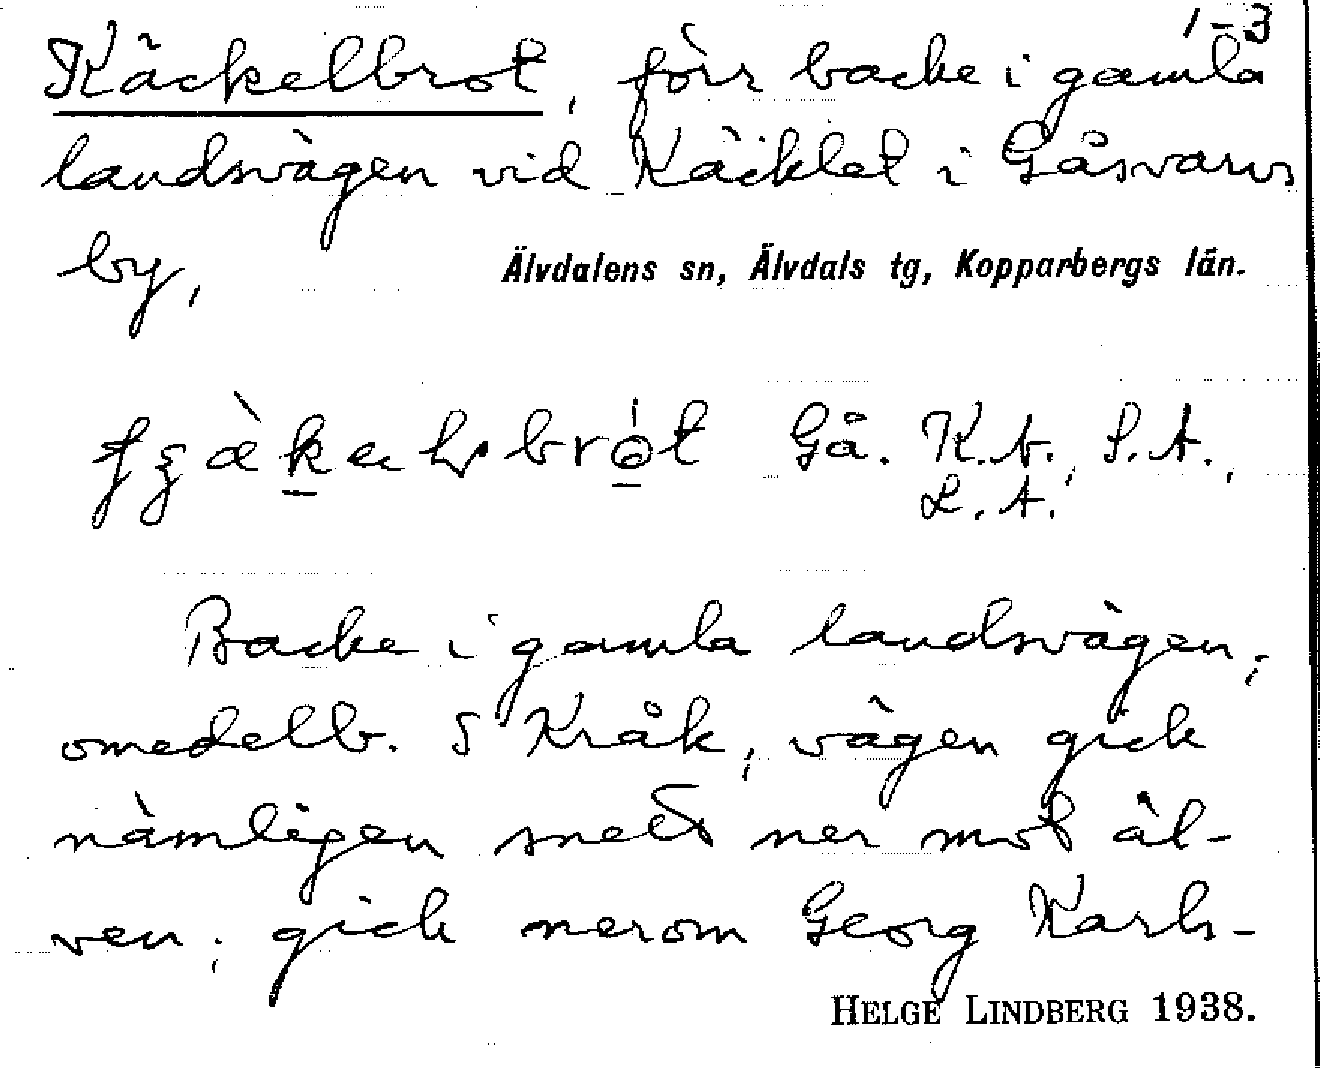 1-3
Käckelbrot, förr backe i gamla
landsvägen vid Käcklet i Gåsvarvs
by, Älvdalens sn, Älvdals tg, Kopparbergs län.
Gå. K.A., S.A.,
L.A.
Backe i gamla landsvägen,
omedelb. S Kråk, vägen gick
nämligen snett ner mot äl-
ven; gick nerom Georg Karls-
HELGE LINDBERG 1938.